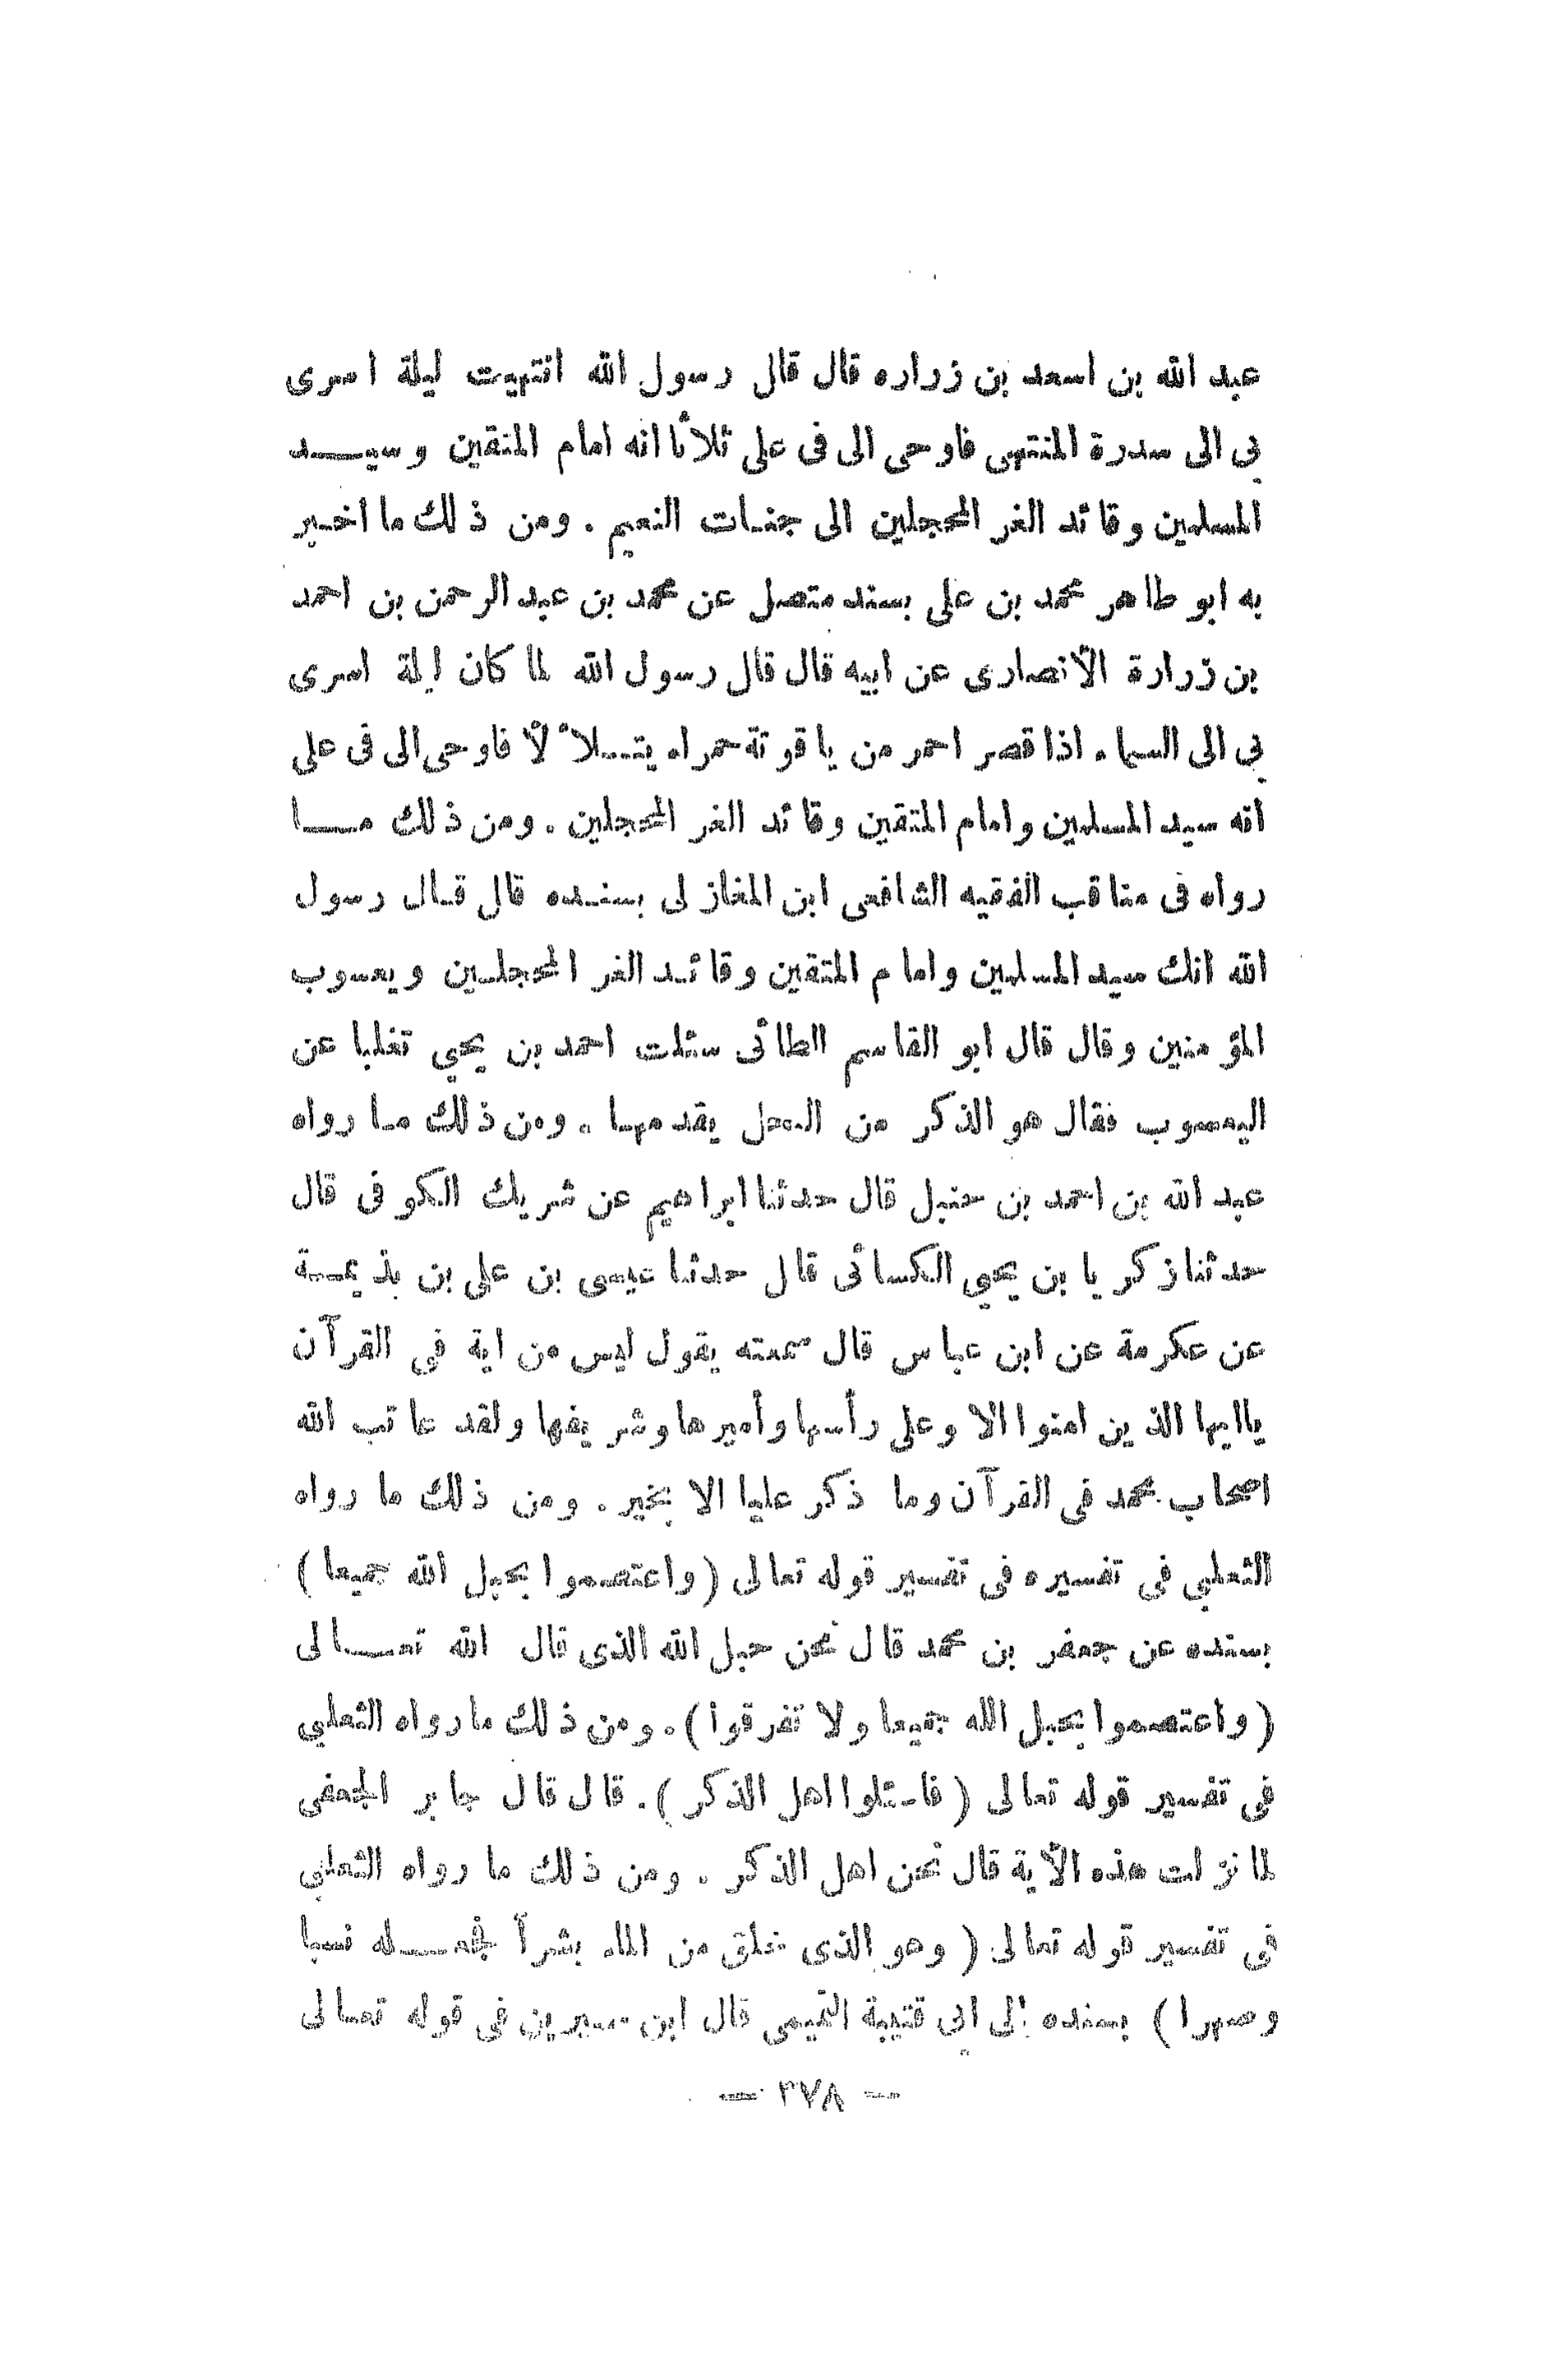 عبد الله بن اسعد بن زراره قال قال رسول الله انتهيت ليلة اسرى
بى الى سدرة المنتهى فاوحى الى فى على ثلاثا انه امام المتقين وسيـــد
المسلمين وقائد الغر المحجلين الى جنـات النعيم . ومن ذلك ما اخـبر
به ابو طاهر محمد بن على بسند متصل عن محمد بن عبد الرحمن بن احمد
بن زرارة الأنصارى عن ابيه قال قال رسول الله لما كان ليلة اسرى
بى الى السماء اذا قصر احمر من ياقوتة حمراء يتـــلأ لأ فاوحى الى فى على
انه سيد المسلمين وامام المتقين وقائد الغر المحجلين . ومن ذلك مـــا
رواه فى مناقب الفقيه الشافعى ابن المغازلى بسنـده قال قـال رسول
الله انك سيد المسلمين وامام المتقين وقائـد الغر المحجلـين ويعسوب
المؤمنين وقال قال ابو القاسم الطائى سئلت احمد بن يحيي تغلبا عن
اليعسوب فقال هو الذكر من النحل يقدمهـا . ومن ذلك مـا رواه
عبد الله بن احمد بن حنبل قال حدثنا ابراهيم عن شريك الكوفى قال
حدثنا زكريا بن يحيي الكسائى قال حدثنا عيسى بن على بن بذيمـــة
عن عكرمة عن ابن عباس قال سمعته يقول ليس من اية في القرآن
ياايها الذين امنوا الا وعلي رأسها وأميرها وشريفها ولقد عاتب الله
اصحاب محمد في القرآن وما ذكر عليا الا بخير . ومن ذلك ما رواه
الثعلبي فى تفسيره فى تفسير قوله تعالى (واعتصموا بحبل الله جميعا)
بسنده عن جعفر بن محمد قال نحن حبل الله الذى قال الله تعـــالى
(واعتصموا بحبل الله جميعا ولا تفرقوا) . ومن ذلك ما رواه الثعلبي
فى تفسير قوله تعالى (فاسئلوا اهل الذكر) . قال قال جابر الجعفى
لما نزلت هذه الأية قال نحن اهل الذكر . ومن ذلك ما رواه الثعلبي
فى تفسير قوله تعالى (وهو الذى خلق من الماء بشرآ فجعـــله نسبا
وصهرا) بسنده إلى ابى قتيبة التميمى قال ابن سيرين فى قوله تعـالى
— ٢٧٨ —